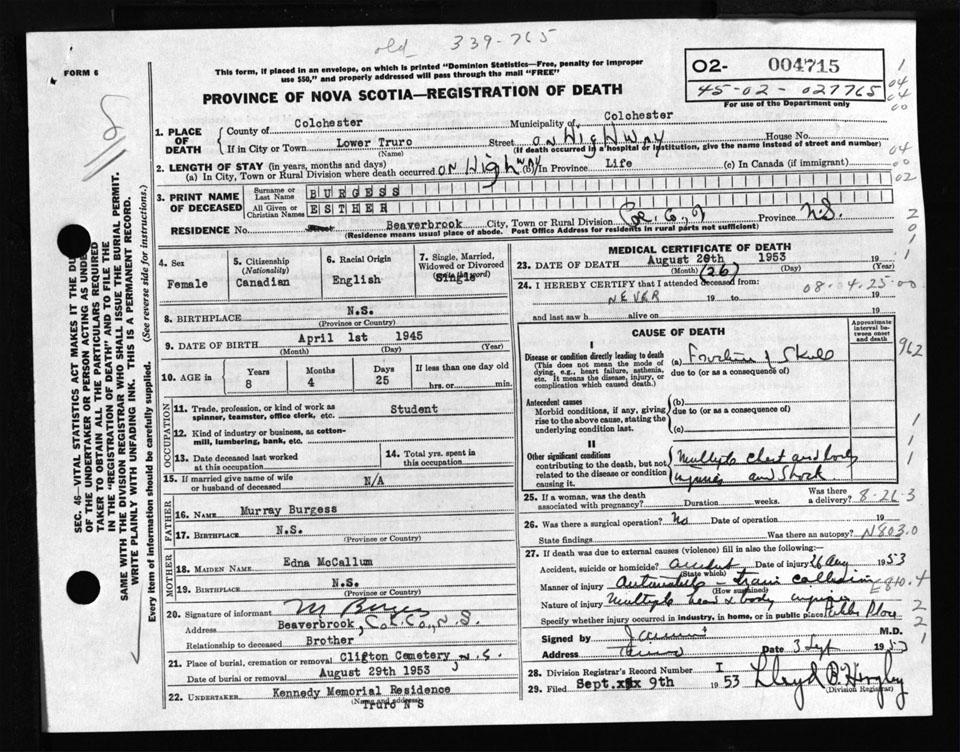 old 339-765
FORM 6
This form, if placed in an envelope, on which is printed "Dominion Statistics—Free, penalty for improper
use $50," and properly addressed will pass through the mail "FREE"
PROVINCE OF NOVA SCOTIA—REGISTRATION OF DEATH
02- 004715
45-02-027765
For use of the Department only
1
04
04
00
04
00
02
2
0
1
SEC. 46—VITAL STATISTICS ACT MAKES IT THE DU
OF THE UNDERTAKER OR PERSON ACTING AS UNDE
TAKER TO OBTAIN ALL THE PARTICULARS REQUIRED
IN THE "REGISTRATION OF DEATH" AND TO FILE THE
SAME WITH THE DIVISION REGISTRAR WHO SHALL ISSUE THE BURIAL PERMIT.
WRITE PLAINLY WITH UNFADING INK. THIS IS A PERMANENT RECORD.
Every item of information should be carefully supplied. (See reverse side for instructions.)
1. PLACE OF DEATH
County of Colchester Municipality of Colchester
If in City or Town Lower Truro Street on HigHway House No.
(Name) (If death occurred in a hospital or institution, give the name instead of street and number)
2. LENGTH OF STAY (in years, months and days)
(a) In City, Town or Rural Division where death occurred on Highway (b) In Province Life (c) In Canada (if immigrant)
3. PRINT NAME OF DECEASED
Surname or Last Name BURGESS
All Given or Christian Names ESTHER
RESIDENCE No. Street Beaverbrook City, Town or Rural Division Col. Co, Province N.S.
(Residence means usual place of abode. Post Office Address for residents in rural parts not sufficient)
4. Sex
Female
5. Citizenship
(Nationality)
Canadian
6. Racial Origin
English
7. Single, Married,
Widowed or Divorced
Single
8. BIRTHPLACE N.S.
(Province or Country)
9. DATE OF BIRTH April 1st 1945
(Month) (Day) (Year)
10. AGE in
Years Months Days If less than one day old
8 4 25 hrs. or min.
OCCUPATION
11. Trade, profession, or kind of work as
spinner, teamster, office clerk, etc. Student
12. Kind of industry or business, as cotton-
mill, lumbering, bank, etc.
13. Date deceased last worked
at this occupation
14. Total yrs. spent in
this occupation
15. If married give name of wife
or husband of deceased N/A
FATHER
16. NAME Murray Burgess
17. BIRTHPLACE N.S.
(Province or Country)
MOTHER
18. MAIDEN NAME Edna McCallum
19. BIRTHPLACE N.S.
(Province or Country)
20. Signature of informant M Burgess
Address Beaverbrook, Col. Co., N.S.
Relationship to deceased Brother
21. Place of burial, cremation or removal Clifton Cemetery, N.S.
Date of burial or removal August 29th 1953
22. UNDERTAKER Kennedy Memorial Residence
(Name and address)
Truro N S
MEDICAL CERTIFICATE OF DEATH
23. DATE OF DEATH August 20th 1953 19
(Month) (26) (Day) (Year)
24. I HEREBY CERTIFY that I attended deceased from:
08-04-25-00
NEVER 19 to 19
and last saw h alive on 19
CAUSE OF DEATH
Approximate
interval be-
tween onset
and death
I
Disease or condition directly leading to death
(This does not mean the mode of
dying, e.g., heart failure, asthenia,
etc. It means the disease, injury, or
complication which caused death.)
(a) Fracture of Skull
due to (or as a consequence of)
962
Antecedent causes
Morbid conditions, if any, giving
rise to the above cause, stating the
underlying condition last.
(b)
due to (or as a consequence of)
(c)
II
Other significant conditions
contributing to the death, but not
related to the disease or condition
causing it.
Multiple chest and body
injuries and Shock
1
1
1
25. If a woman, was the death
associated with pregnancy? Duration weeks. Was there
a delivery? 8-26-3
26. Was there a surgical operation? No Date of operation 19
State findings Was there an autopsy? N803.0
27. If death was due to external causes (violence) fill in also the following:—
Accident, suicide or homicide? accident Date of injury 26 Aug 1953
(State which)
Manner of injury Automobile - train collision E810.4
(How sustained)
Nature of injury Multiple head & body injuries
Specify whether injury occurred in industry, in home, or in public place Public Place
2
2
1
Signed by M.D.
Address Truro Date 3 Sept 1953
28. Division Registrar's Record Number I
29. Filed Sept. 9th 1953
(Division Registrar)